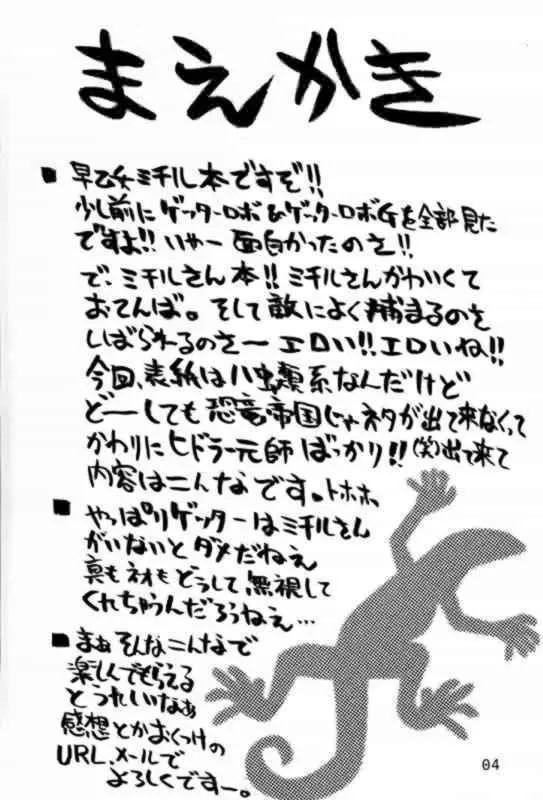 まえかき
■ 早乙女ミチル本ですぞ!!
少し前にゲッターロボ&ゲッターロボGを全部見た
ですよ!! いやー面白かったのさ!!
で、ミチルさん本!! ミチルさんかわいくて
おてんば。そして敵によく捕まるのさ
しばられるのさーエロい!!エロいね!!
今回、表紙はハ虫類系なんだけど
どーしても恐竜帝国じゃネタが出て来なくって
かわりにヒドラー元師ばっかり!!(笑)出て来て
内容はこんなです。トホホ。
■ やっぱりゲッターはミチルさん
がいないとダメだねえ
真もネオもどうして無視して
くれちゃうんだろうねえ…
■ まぁそんなこんなで
楽しんでもらえる
とうれいなぁ
感想とかおくつけの
URL、メールで
よろしくですー。
04